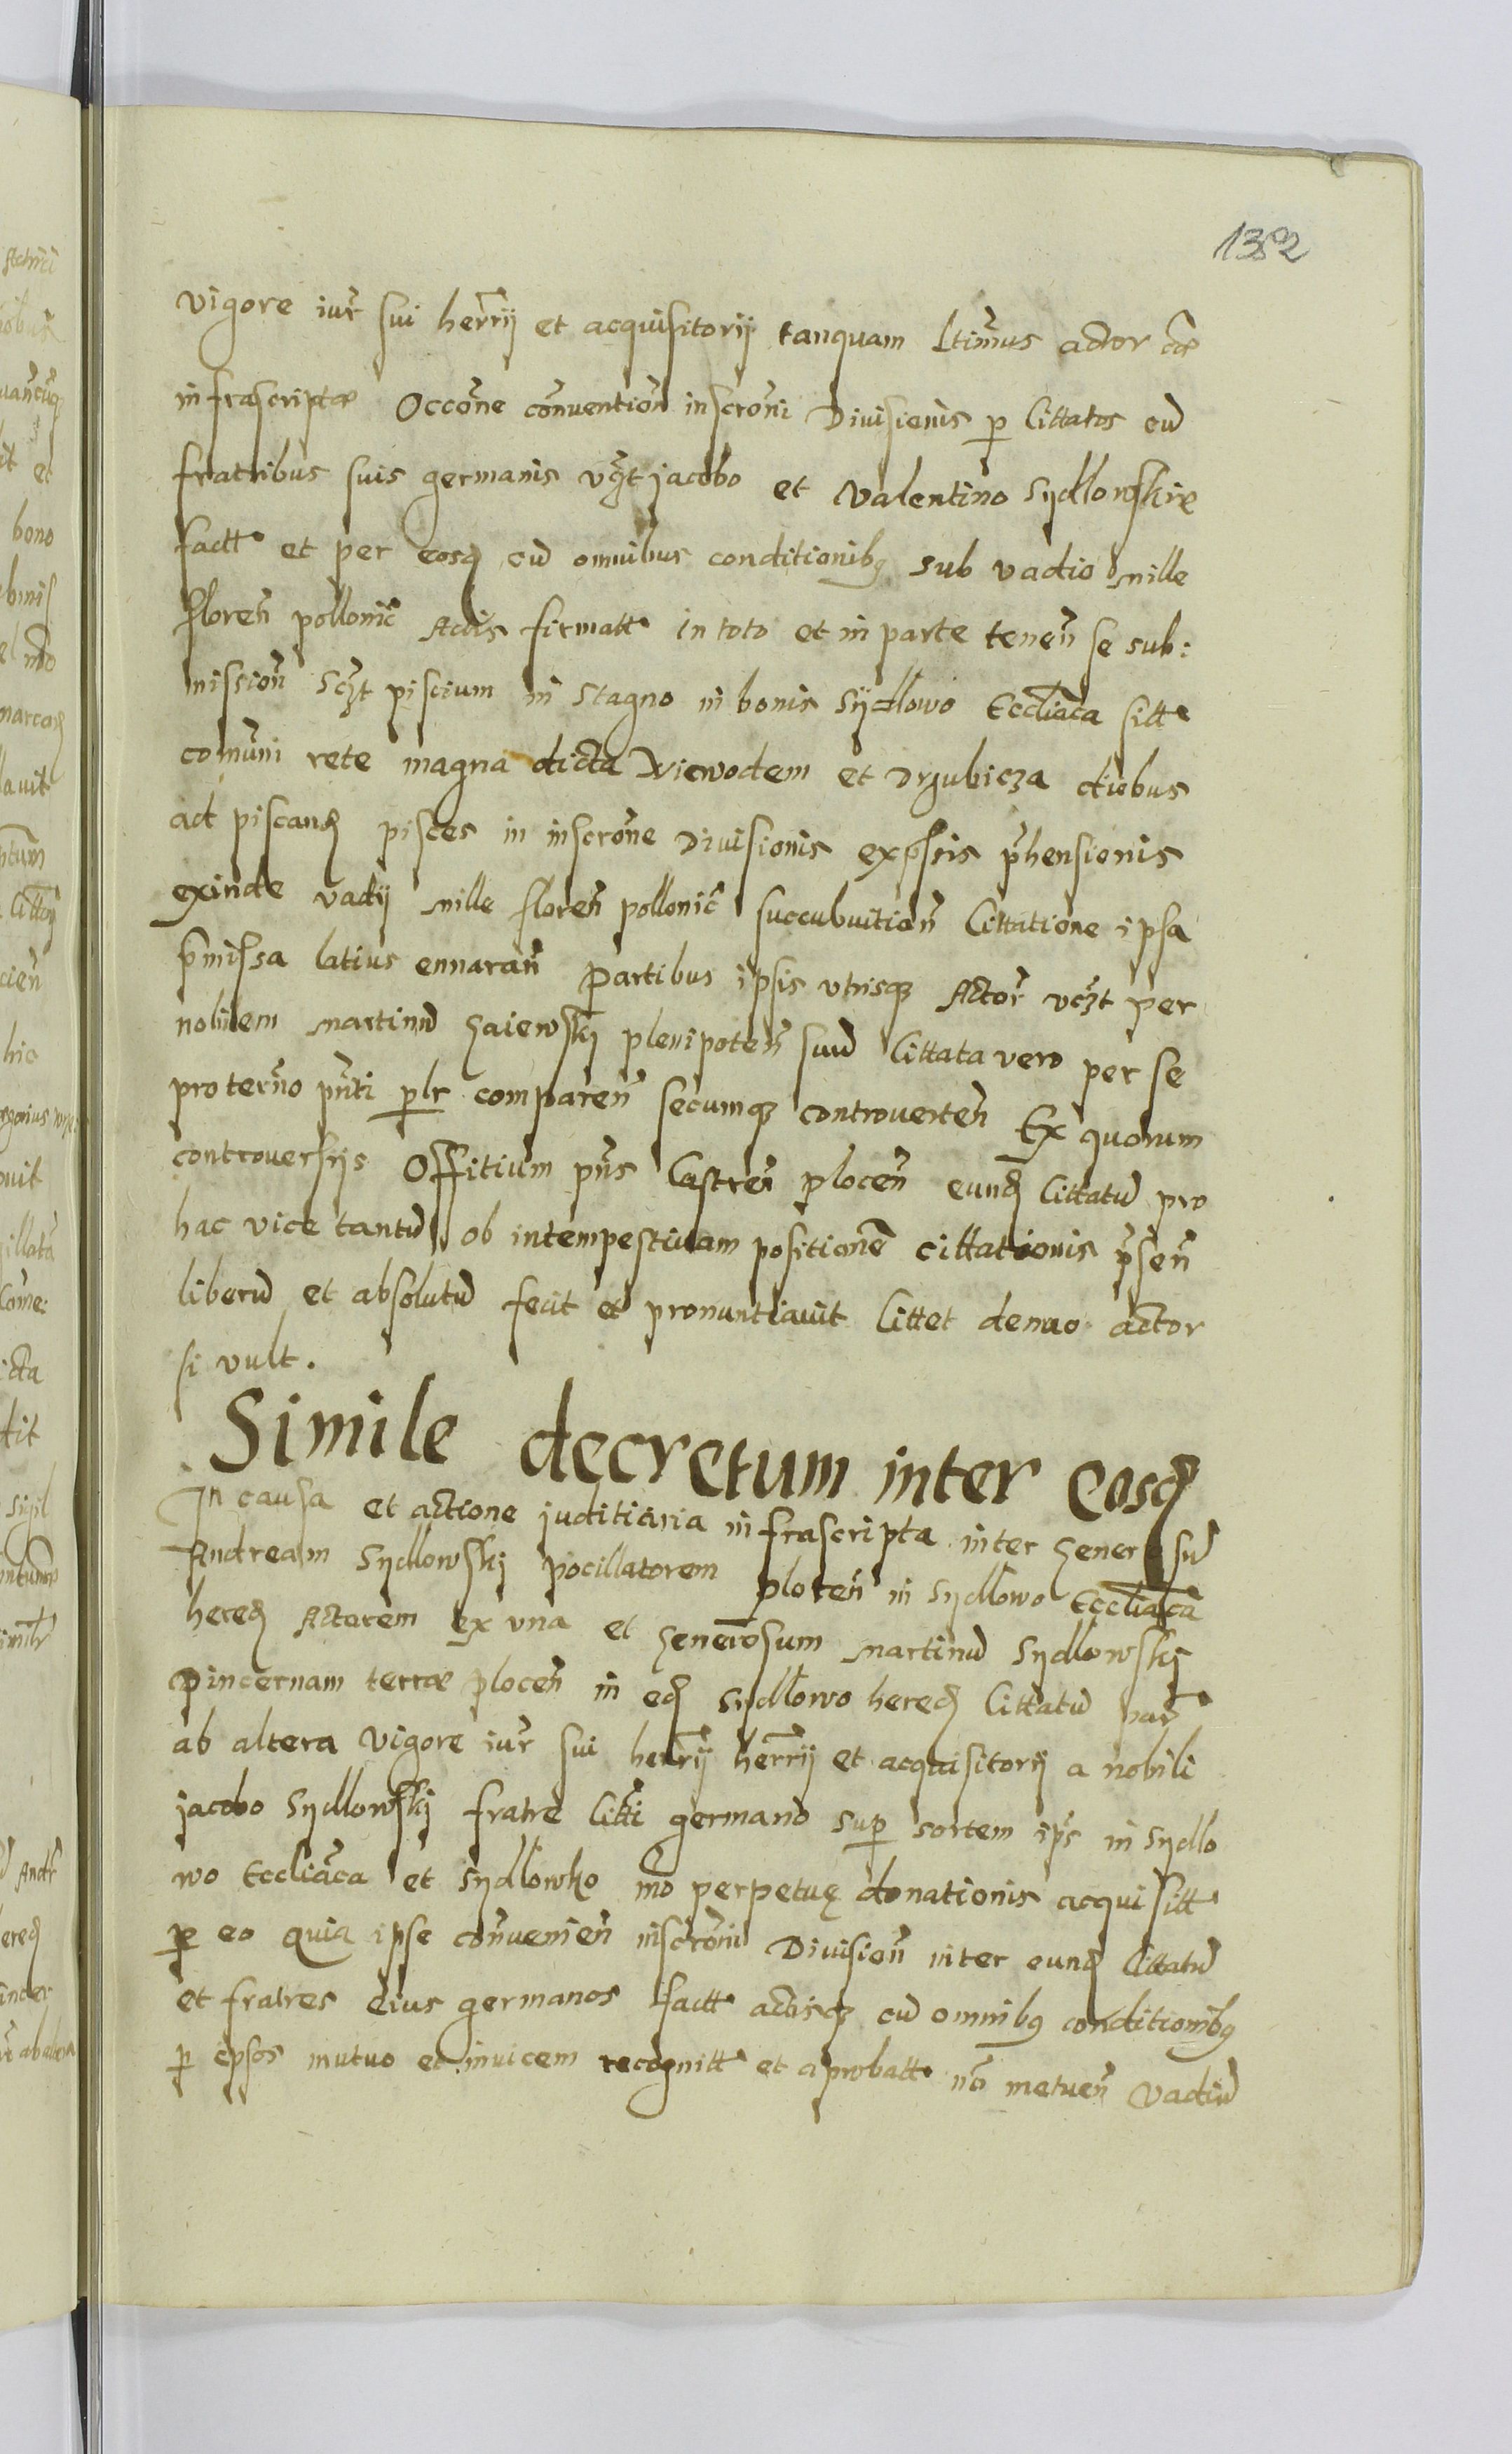 1382
vigore iur̃ sui herr̃ij et acquisitorij tanquam ltim̃us actor cã
infrascriptæ Occoñe conuentioñ inscroñi Divisionis p̱ Cittatos cũ
fratribus suis germanis vc̃zt jacobo et valentino Sydlowskie
factt et per eosd̃ cũ omnibus conditionibq̃ sub vadio mille
floreñ pollonic̃ Actis firmatt in toto et in parte teneñ se sub:
missioñ sc̃zt piscium in stagno in bonis Sÿdlowo Eccl̃iaca sitt
com̃uni rete magna dicta Niewodem et Drgubicza diebus
ad piscand̃ pisces in inscroñe Divisionis exp̃ssis p̃hensionis
exinde vadij mille floreñ pollonic̃ succubuitioñ Cittatione ipsa
p̃missa latius ennarañ partibus ipsis vtrisq̃ Actor̃ vc̃zt per
nobilem martinũ Gaiewskj plenipoteñ suũ Cittata vero per se
pro term̃o pñti p̱lr compareñ secumq̃ controuerteñ Ex quorum
controuersijs Offitium pñs Castreñ ploceñ eund̃ Cittatũ pro
hac vice tantũ ob intempestiuam positionẽ cittationis p̃señ
liberũ et absolutũ fecit et pronuntiauit Cittet denuo actor
si vult.
Simile decretum inter eosd̃
In causa et actione juditiaria infrascripta inter Generosũ
Andream Sydlowskj pocillatorem ploceñ in Sydlowo Eccl̃iacã
hered̃ Actorem ex vna et Generosum martinũ Sydlowskj
pincernam terræ ploceñ in ed̃ Sydlowo hered̃ Cittatũ par̃
ab altera vigore iur̃ sui herr̃ij herr̃ij et acquisitorij a nobili
jacobo Sydlowskj fratre Citti germano sup̱ sortem ip̃s in Sydlo
wo Eccl̃iaca et Sydlowko mõ perpetuę donationis acquisitt
p̱ eo quia ipse conuenieñ inscroñi Divisioñ inter eund̃ Cittatũ
et fratres eius germanos factt actisq̃ cũ omnibq̃ conditionibq̃
p̱ epsos mutuo et inuicem recognitt et aprobatt nõ metueñ vadiũ